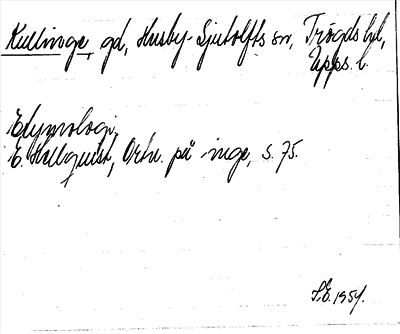 Kullinge, gd, Husby-Sjutolfts sn, Trögds hd,
Upps. l.
Etymologi,
E. Hellquist, Ortn. på -inge, s. 75.
S.E. 1954.